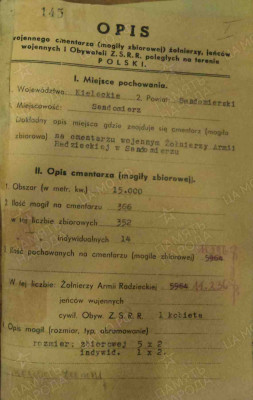 143
OPIS
wojennego cmentarza (mogiły zbiorowej) żołnierzy, jeńców
wojennych i Obywateli Z.S.R.R. poległych na terenie
POLSKI.
I. Miejsce pochowania.
Województwo Kieleckie 2 Powiat Sandomierski
Miejscowość: Sandomierz
Dokładny opis miejsca gdzie znajduje się cmentarz (mogiła
zbiorowa) na cmentarzu wojennym Żołnierzy Armii
Radzieckiej w Sandomierzu
II. Opis cmentarza (mogiły zbiorowej).
1. Obszar (w metr. kw.) 15.000
2 Ilość mogił na cmentarzu 366
w tej liczbie zbiorowych 352
indywidualnych 14
3 Ilość pochowanych na cmentarzu (mogile zbiorowej) 5964
W tej liczbie: Żołnierzy Armii Radzieckiej 5964
jeńców wojennych
cywil. Obyw. Z. S. R. R. 1 kobieta
Opis mogił (rozmiar, typ, obramowanie)
rozmiar; zbiorowej 5 x 2
indywid. 1 x 2.